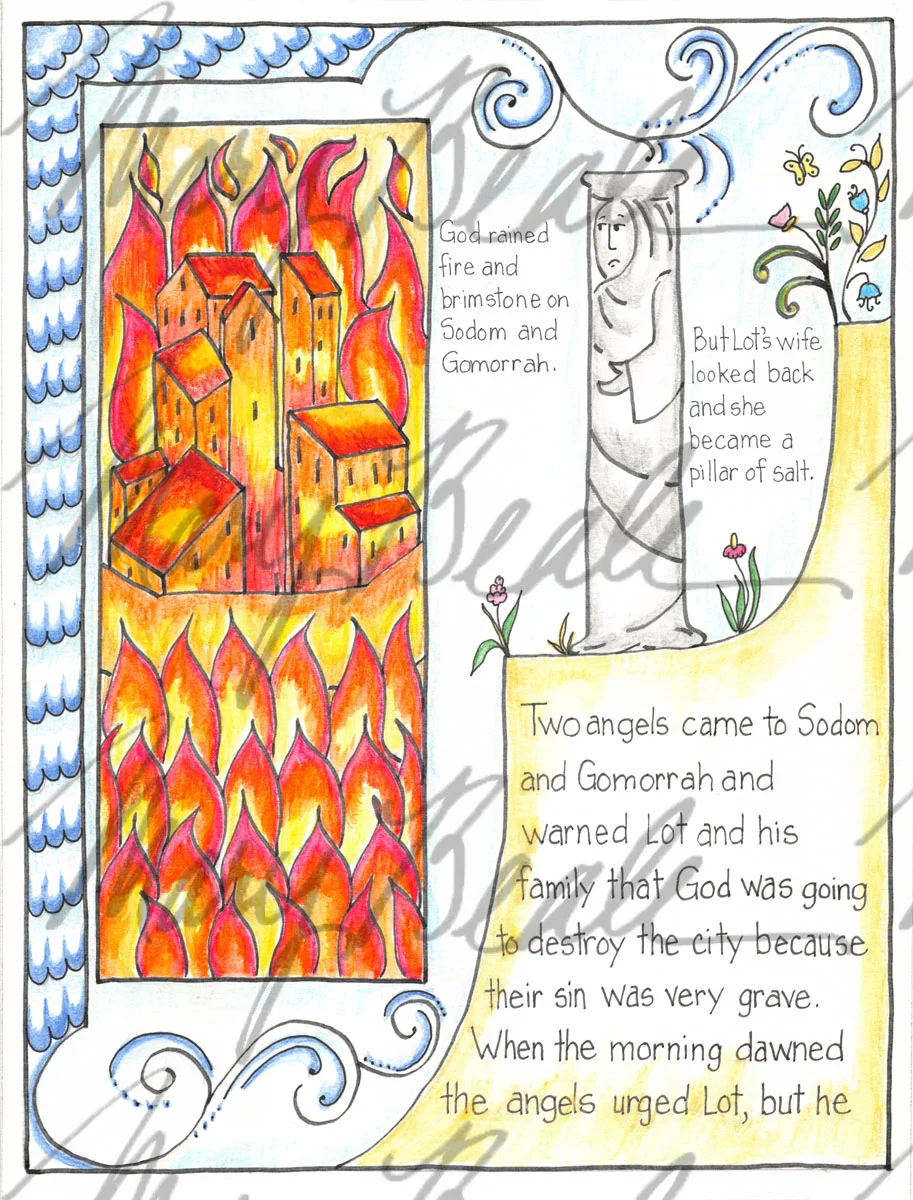 God rained
fire and
brimstone on
Sodom and
Gomorrah.
But Lot's wife
looked back
and she
became a
pillar of salt.
Two angels came to Sodom
and Gomorrah and
warned Lot and his
family that God was going
to destroy the city because
their sin was very grave.
When the morning dawned
the angels urged Lot, but he
Mary Beale
Mary Beale
Mary Beale
Mary Beale